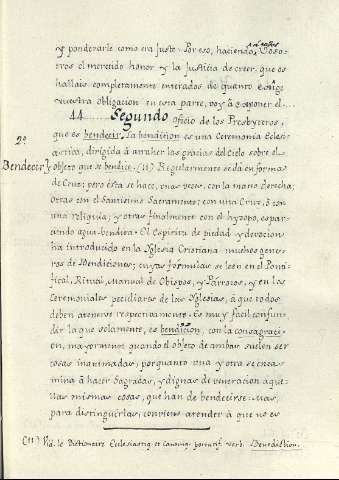 y ponderarle como era justo. Por eso, haciendo á vosotros
tros el merecido honor y la justicia de creer que os
hallais completamente enterados de quanto exige
vuestra obligacion en esta parte, voy á exponer el...
44. Segundo oficio de los Presbyteros,
que es bendecir. La bendicion es una Ceremonia Ecles-
2º
Bendecir
iastica, dirigida á atraher las gracias del Cielo sobre el
objeto que se bendice. (11) Regularmente se dá en forma
de Cruz; pero ésta se hace, unas veces, con la mano derecha;
otras con el Santisimo Sacramento; con una Cruz, ó con
una reliquia; y otras finalmente con el hysopo, espar-
ciendo agua bendita. El Espiritu de piedad y devocion
ha introducido en la Yglesia Cristiana muchos gene-
ros de Bendiciones; cuyas formulas se leen en el Ponti-
fical, Ritual, Manual de Obispos, y Parrocos, y en los
Ceremoniales peculiares de las Yglesias, á que todos
deben atenerse respectivamente. Es muy facil confun-
dir la que solamente, es bendicion, con la consagraci-
on, mayormente quando el objeto de ambas suelen ser
cosas inanimadas; porquanto una y otra se encas
mina á hacer Sagradas, y dignas de veneracion aque-
llas mismas cosas, que han de bendecirse: mas,
para distinguirlas, conviene atender á que no es
(11) Vid. le Dictionaire Ecclesiastiq. et Canoniq. portatif. verb. Benediction.